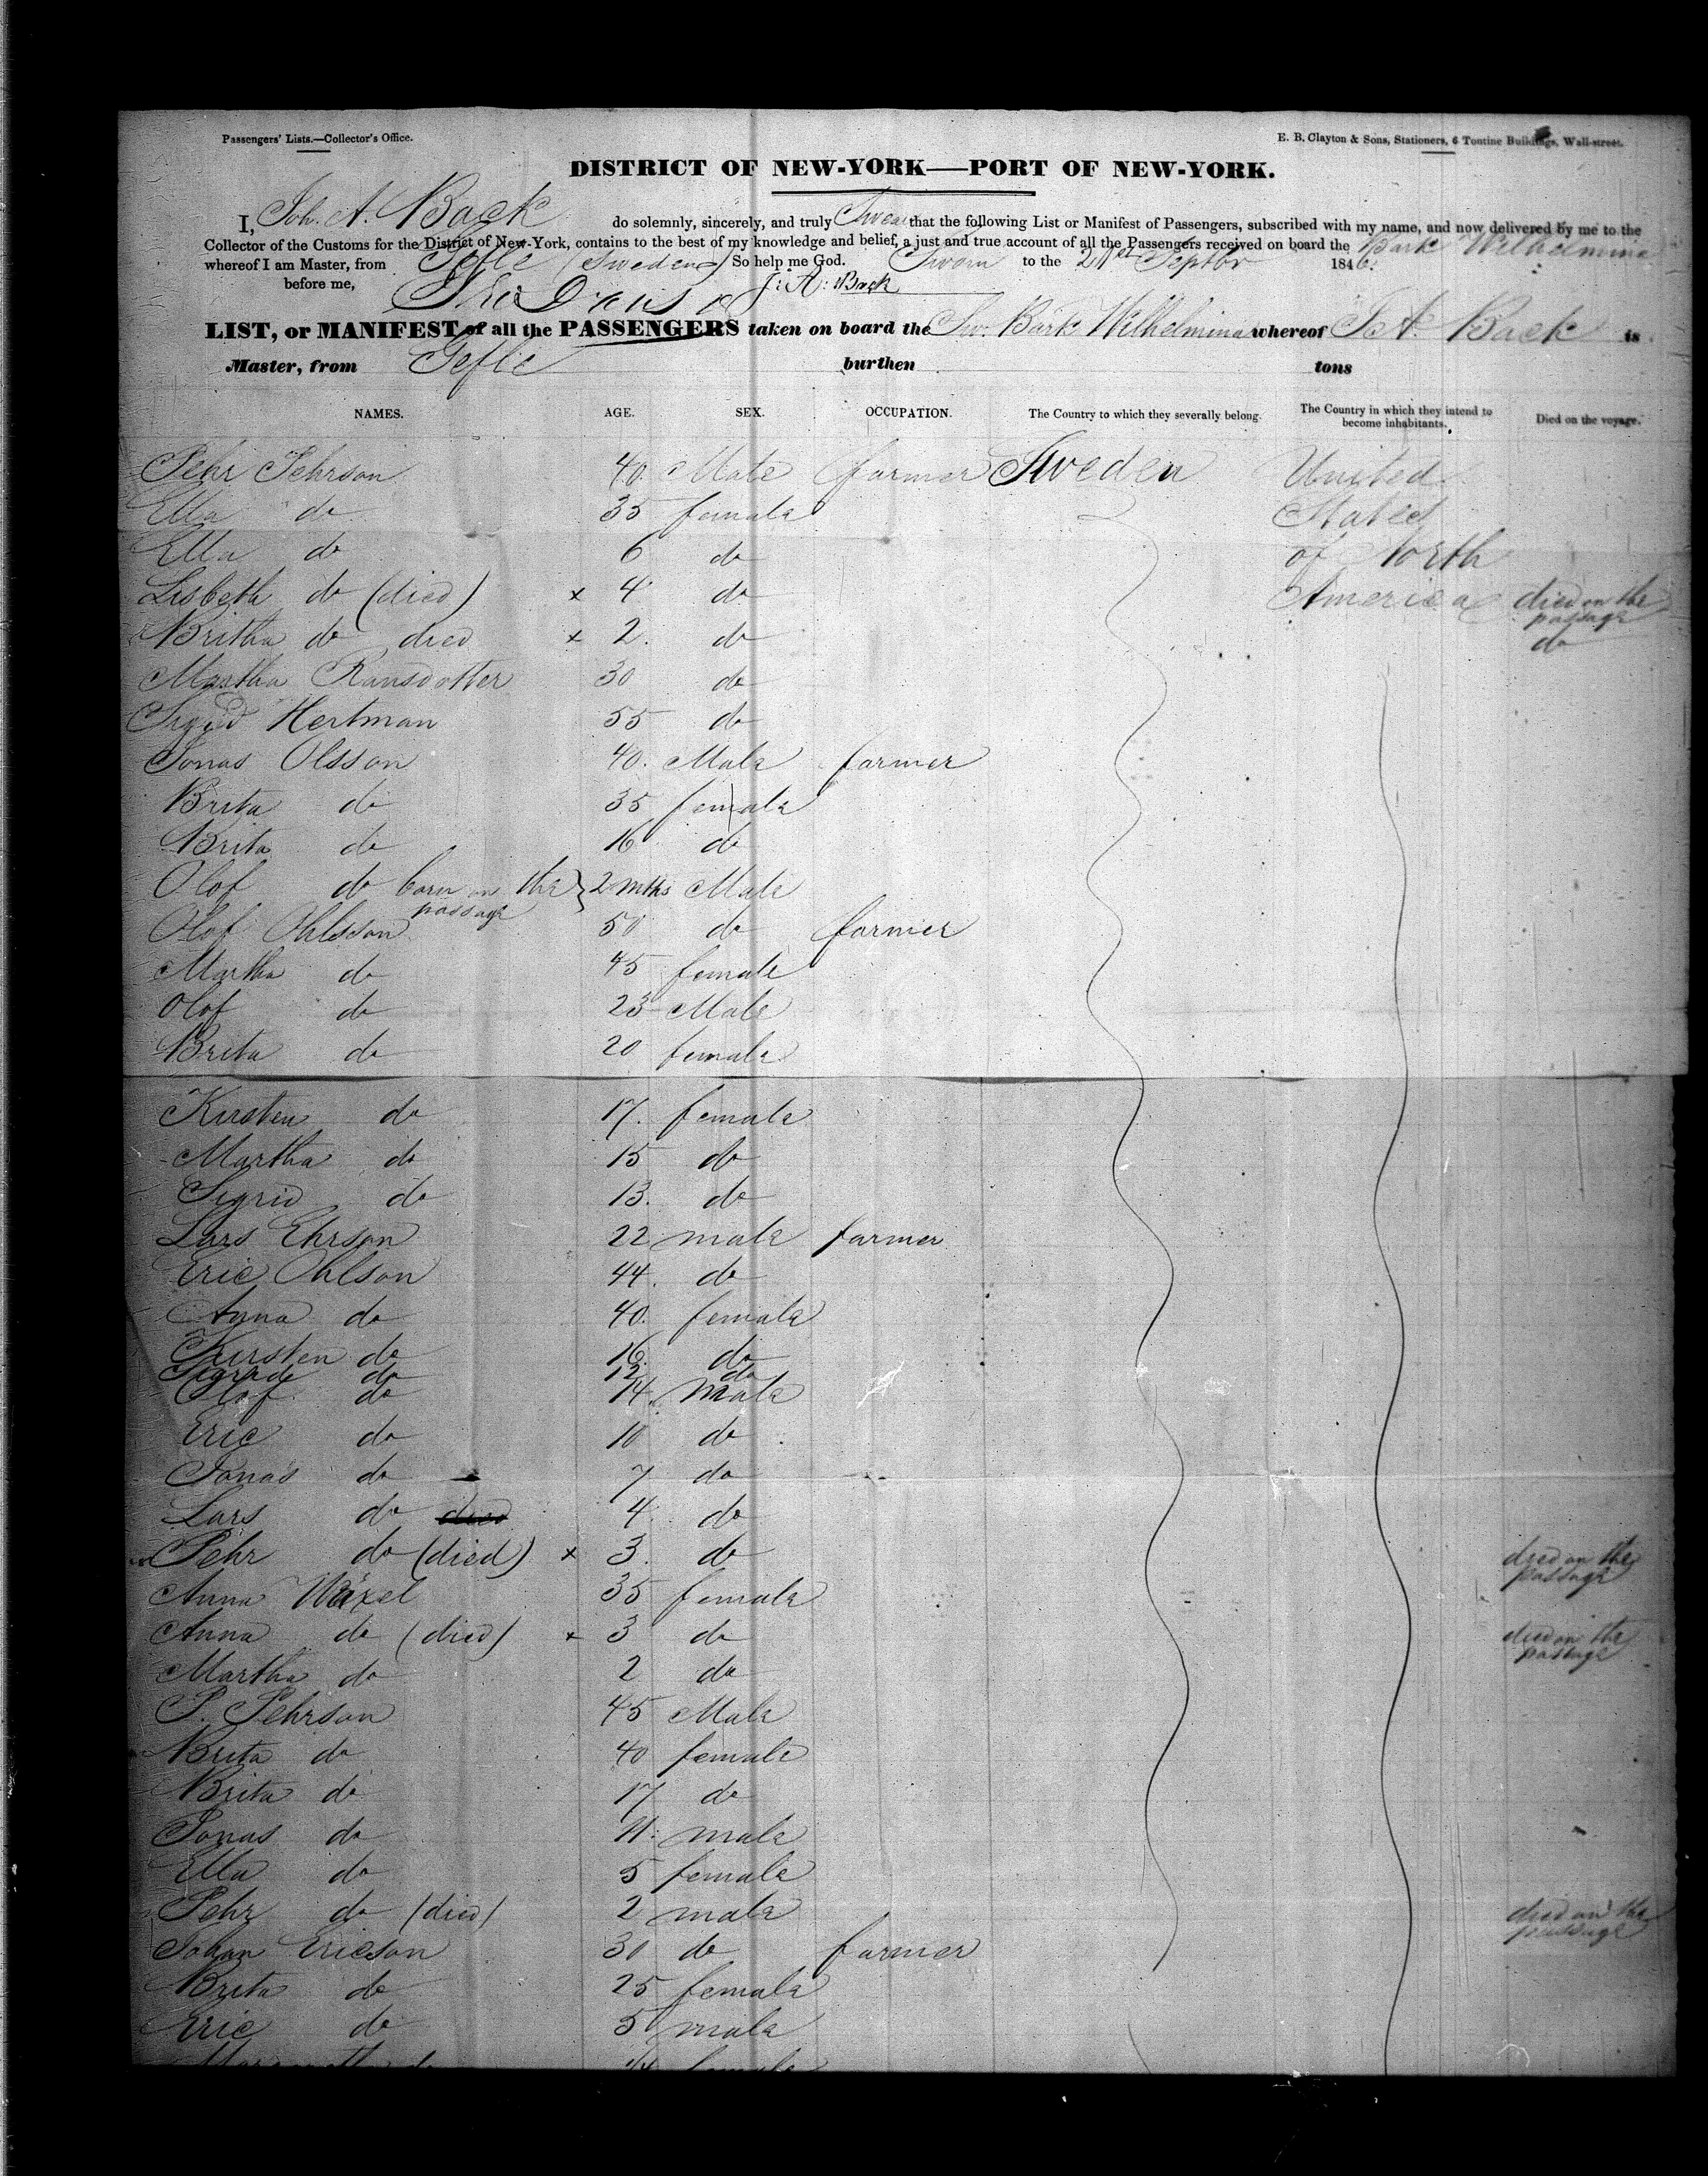 Passengers' Lists.—Collector's Office.
E. B. Clayton & Sons, Stationers, 6 Tontine Buildings, Wall-street.
DISTRICT OF NEW-YORK——PORT OF NEW-YORK.
I, Joh. A. Back do solemnly, sincerely, and truly Swear that the following List or Manifest of Passengers, subscribed with my name, and now delivered by me to the
Collector of the Customs for the District of New-York, contains to the best of my knowledge and belief, a just and true account of all the Passengers received on board the Bark Wilhelmina
whereof I am Master, from Gefle (Sweden) So help me God. Sworn to the 21st Septbr 1846.
before me, J: A: Back
LIST, or MANIFEST of all the PASSENGERS taken on board the Sw. Bark Wilhelmina whereof J. A. Back is
Master, from Gefle burthen tons
NAMES. AGE. SEX. OCCUPATION. The Country to which they severally belong. The Country in which they intend to become inhabitants. Died on the voyage.
Pehr Pehrson 40. Male farmer Sweden United
Ella do 35 female States
Ella do 6 do of North
Lisbeth do (died) x 4 do America died on the passage
Britha do died x 2. do do
Martha Ransdotter 30 do
Sigrid Hertman 55 do
Jonas Olsson 40. Male farmer
Brita do 35 female
Brita do 16 do
Olof do born on the passage } 2 mths Male
Olof Ohlsson 50 do farmer
Martha do 45 female
Olof do 23 Male
Brita do 20 female
Kirsten do 17. female
Martha do 15 do
Sigrid do 13. do
Lars Ehrson 22 male farmer
Eric Ohlson 44. do
Anna do 40. female
Kirsten do 16. do
Sigride do 12 do
Olof do 14. Male
Eric do 10 do
Jonas do 7 do
Lars do died 4. do
Pehr do (died) x 3. do died on the passage
Anna Wäxel 35 female
Anna do (died) x 3 do died on the passage
Martha do 2 do
P. Pehrson 45 Male
Brita do 40 female
Brita do 17 do
Jonas do 11. male
Ella do 5 female
Pehr do (died) 2 male died on the passage
Johan Ericson 30 do farmer
Brita do 25 female
Eric do 5 male